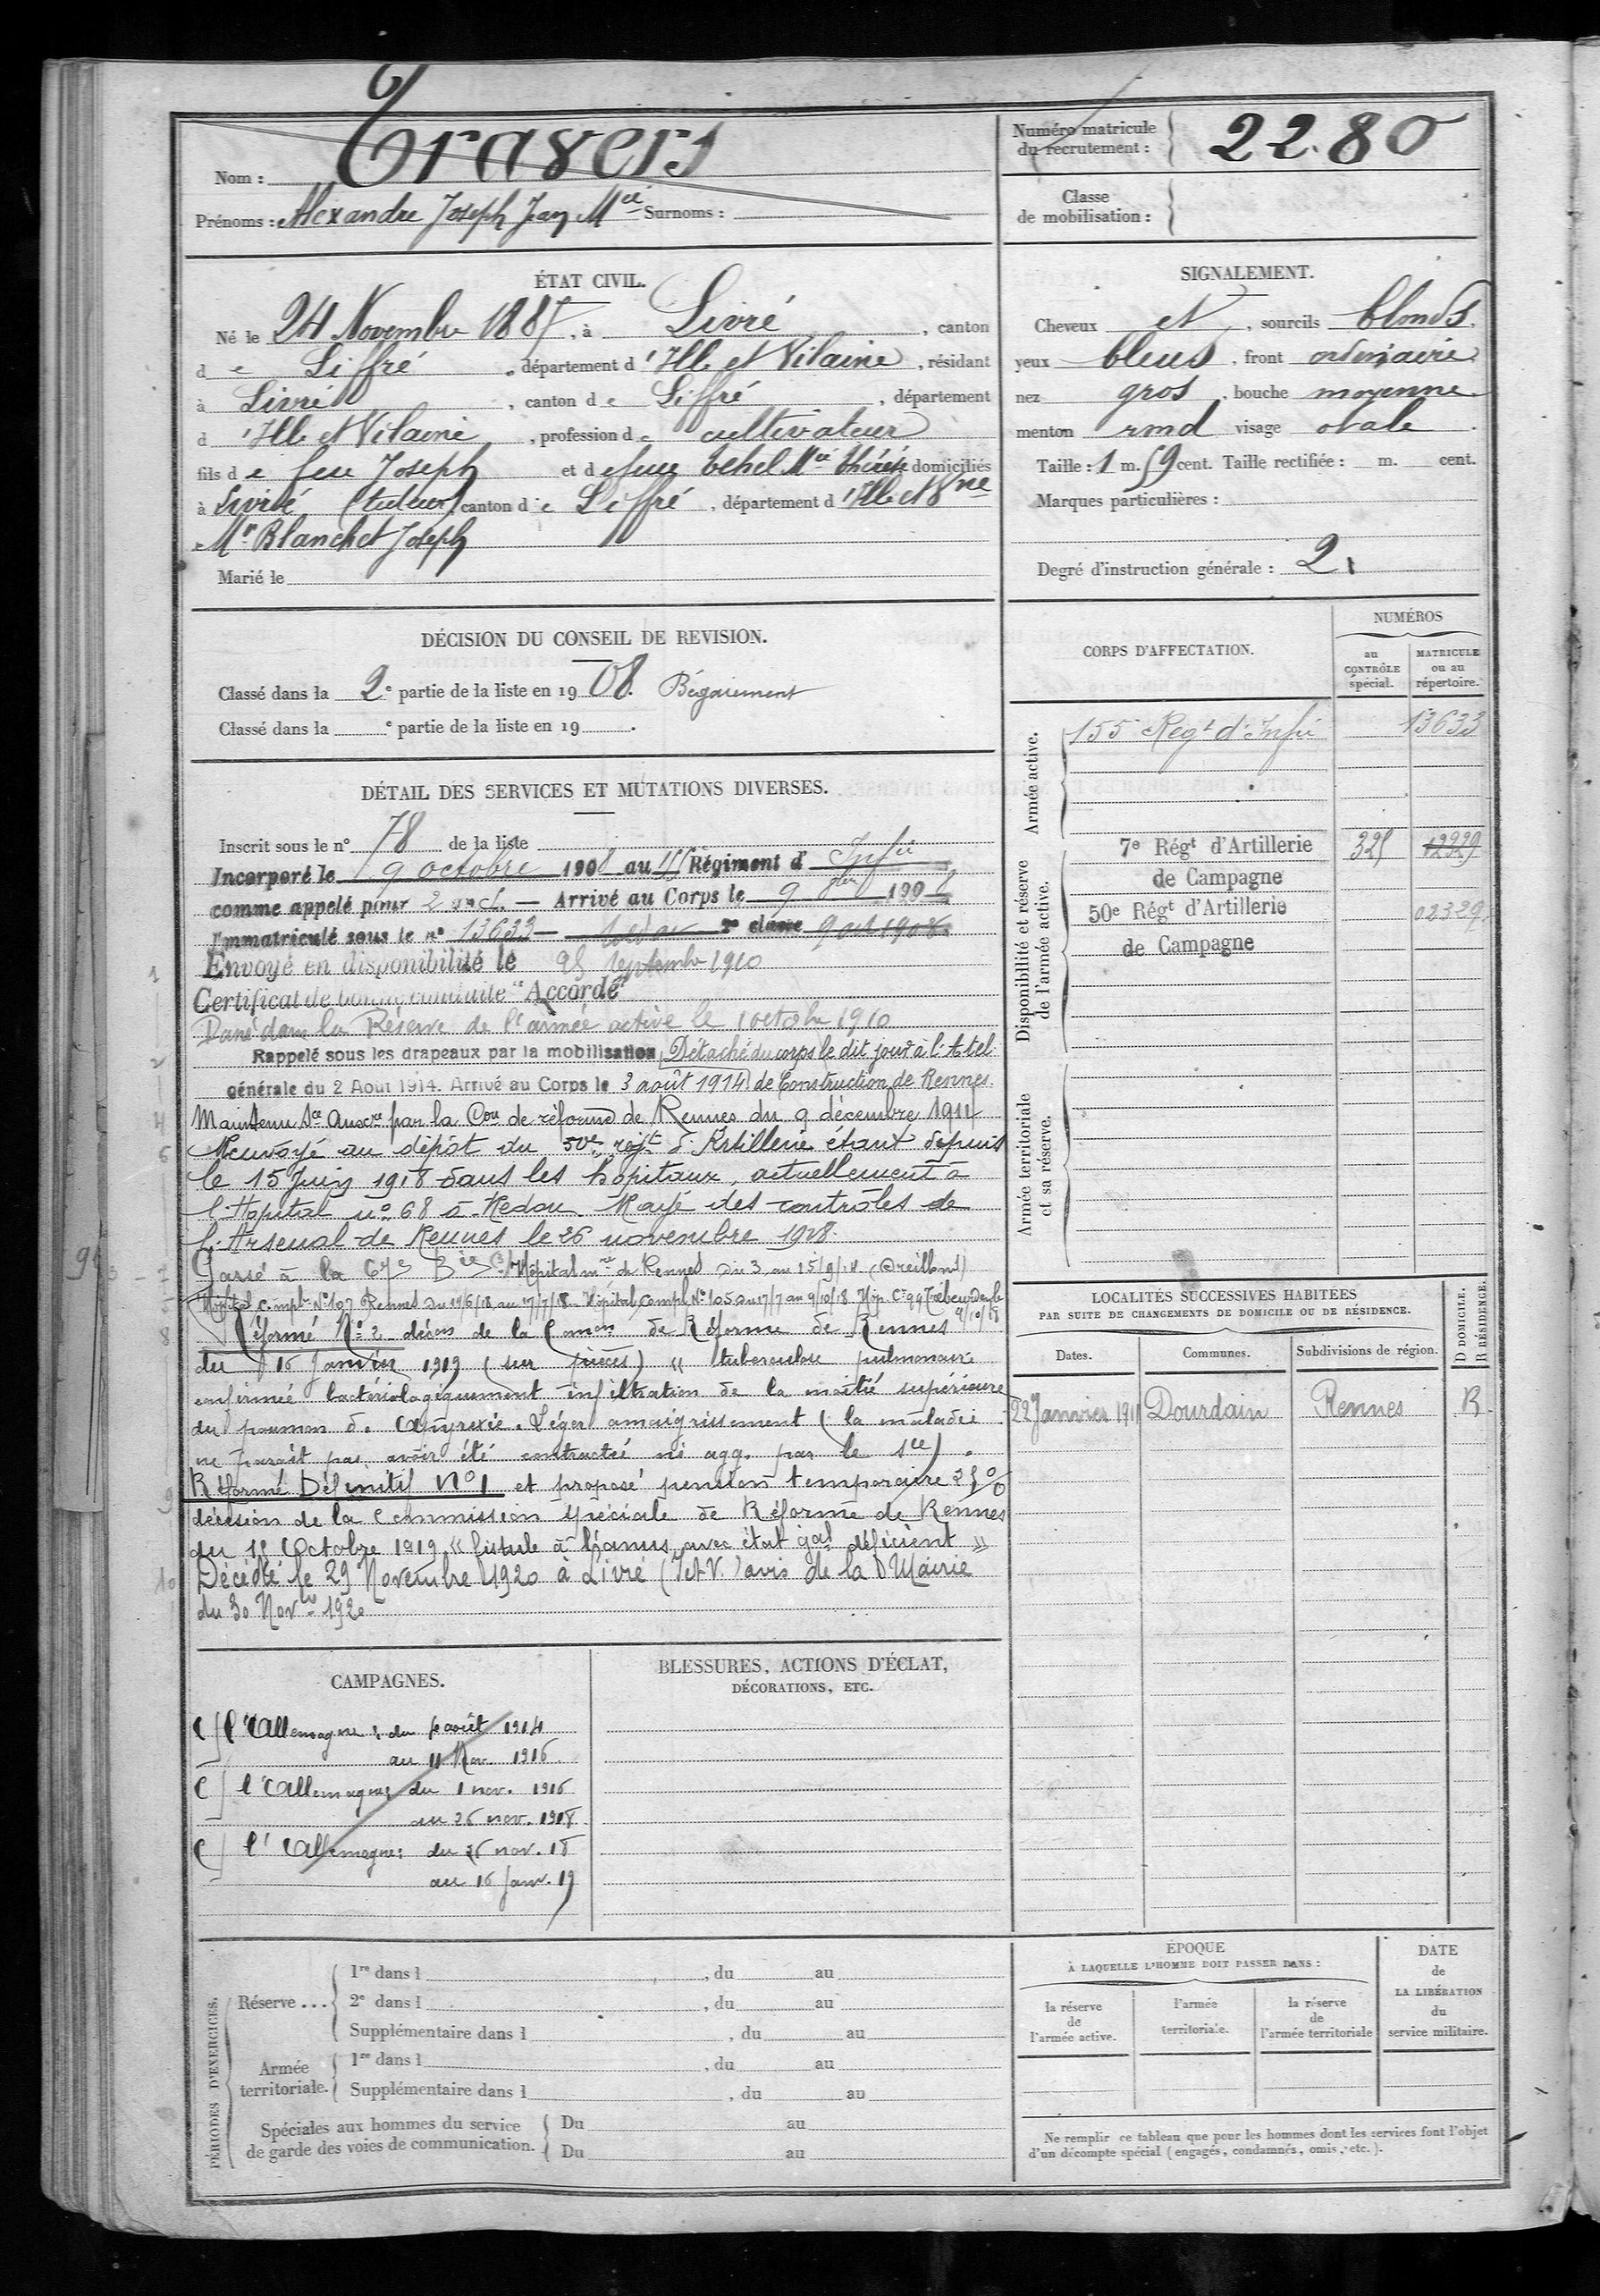 Nom : Travers
Prénoms : Alexandre Joseph Jean Mie Surnoms :
Numéro matricule du recrutement : 2280
Classe de mobilisation :
ÉTAT CIVIL.
Né le 24 Novembre 1887, à Livré, canton
de Liffré, département d'Ille et Vilaine, résidant
à Livré, canton de Liffré, département
d'Ille et Vilaine, profession de cultivateur
fils de feu Joseph et de feue Mie Thérèse domiciliés
à Livré (tuteur) canton de Liffré, département d'Ille et Vne
Mr Blanchet Joseph
Marié le
SIGNALEMENT.
Cheveux et, sourcils blonds,
yeux bleus, front ordinaire,
nez gros, bouche moyenne
menton rond visage ovale.
Taille : 1 m. 59 cent. Taille rectifiée : m. cent.
Marques particulières :
Degré d'instruction générale : 2
DÉCISION DU CONSEIL DE REVISION.
Classé dans la 2e partie de la liste en 1908. Bégaiement
Classé dans la e partie de la liste en 19 .
DÉTAIL DES SERVICES ET MUTATIONS DIVERSES.
Inscrit sous le n° 78 de la liste
Incorporé le 9 octobre 1908 au 155 Régiment d'Infie
comme appelé pour 2 ans. — Arrivé au Corps le 9 8bre 1908
Immatriculé sous le n° 13633 — soldat 2e classe 9 oct 1908.
Envoyé en disponibilité le 25 septembre 1910
Certificat de bonne conduite "Accordé"
Passé dans la Réserve de l'armée active le 1 octobre 1910
Rappelé sous les drapeaux par la mobilisation Détaché du corps le dit jour à l'Atel.
générale du 2 Août 1914. Arrivé au Corps le 3 août 1914 de Construction de Rennes.
Maintenu Sce Auxre par la Con de réforme de Rennes du 9 décembre 1914
Renvoyé au dépôt du 50e regt d'Artillerie étant depuis
le 15 Juin 1918 dans les hôpitaux, actuellement à
l'Hôpital n° 68 à Redon. Rayé des contrôles de
l'Arsenal de Rennes le 26 novembre 1918.
Passé à la 67e Bie Hôpital mre de Rennes du 3 au 15/9/14 (Oreillons)
Hôpital Compl. N° 107 Rennes du 19/6/18 au 17/7/18. Hôpital Compl N° 105 du 17/7 au 9/10/18 Hôp. Cre 94
9/10/18
Réformé N° 2 décon de la Comon de Réforme de Rennes
du 16 Janvier 1919 (sur pièces) « tuberculose pulmonaire
confirmée bactériologiquement infiltration de la moitié supérieure
du poumon d. Apyrexie. Léger amaigrissement (la maladie
ne paraît pas avoir été contractée ni agg. par le sce).
Réformé Définitif N° 1 et proposé pension temporaire 25%
décision de la Commission Spéciale de Réforme de Rennes
du 15 Octobre 1919 « fistule à l'anus avec état gal déficient »
Décédé le 29 Novembre 1920 à Livré (I et V.) avis de la Mairie
du 30 Novbre 1920
CORPS D'AFFECTATION.
NUMÉROS
au CONTRÔLE spécial.
MATRICULE ou au répertoire.
Armée active.
155 Regt d'Infie 13633
Disponibilité et réserve de l'armée active.
7e Régt d'Artillerie de Campagne 325
50e Régt d'Artillerie de Campagne 02329
Armée territoriale et sa réserve.
LOCALITÉS SUCCESSIVES HABITÉES
PAR SUITE DE CHANGEMENTS DE DOMICILE OU DE RÉSIDENCE.
Dates. Communes. Subdivisions de région. D DOMICILE. R RÉSIDENCE.
22 Janvier 1911 Dourdain Rennes R.
CAMPAGNES.
C l'Allemagne : du août 1914
au 11 Nov. 1916
C l'Allemagne du 1 nov. 1916
au 26 nov. 1918
C l'Allemagne: du 26 nov. 18
au 16 Janv. 19
BLESSURES, ACTIONS D'ÉCLAT,
DÉCORATIONS, ETC.
PÉRIODES D'EXERCICES.
Réserve ...
1re dans l , du au
2e dans l , du au
Supplémentaire dans l , du au
Armée territoriale.
1re dans l , du au
Supplémentaire dans l , du au
Spéciales aux hommes du service de garde des voies de communication.
Du au
Du au
ÉPOQUE
À LAQUELLE L'HOMME DOIT PASSER DANS :
la réserve de l'armée active.
l'armée territoriale.
la réserve de l'armée territoriale
DATE de LA LIBÉRATION du service militaire.
Ne remplir ce tableau que pour les hommes dont les services font l'objet
d'un décompte spécial (engagés, condamnés, omis, etc.).